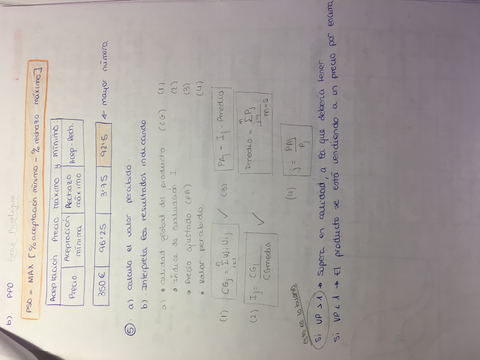 b) PPO
PSO = MAX [% aceptación mínimo - % rechazo máximo]
Aceptación Precio máximo y mínimo
Precio Aceptación mínima Rechazo máximo Acep-Rech.
350€ 96'25 3'75 92'5 ← mayor número
⑤ a) calcula el valor percibido
b) Interpreta los resultados
a) • calidad global del producto (CG) (1)
• Índice de evaluación I (2)
• Precio ajustado (PA) (3)
• Valor percibido (4)
(1) CGj = Σ Wi · Uij ✓ (3) PAj = Ij · Pmedio
(2) Ij = CGj / CG medio ✓ Pmedio = Σ Pj / m=5
(4) j = PAj / Pj
Si VP > 1 → supera en calidad a la que debería tener
Si VP < 1 → El producto se está vendiendo a un precio por encima